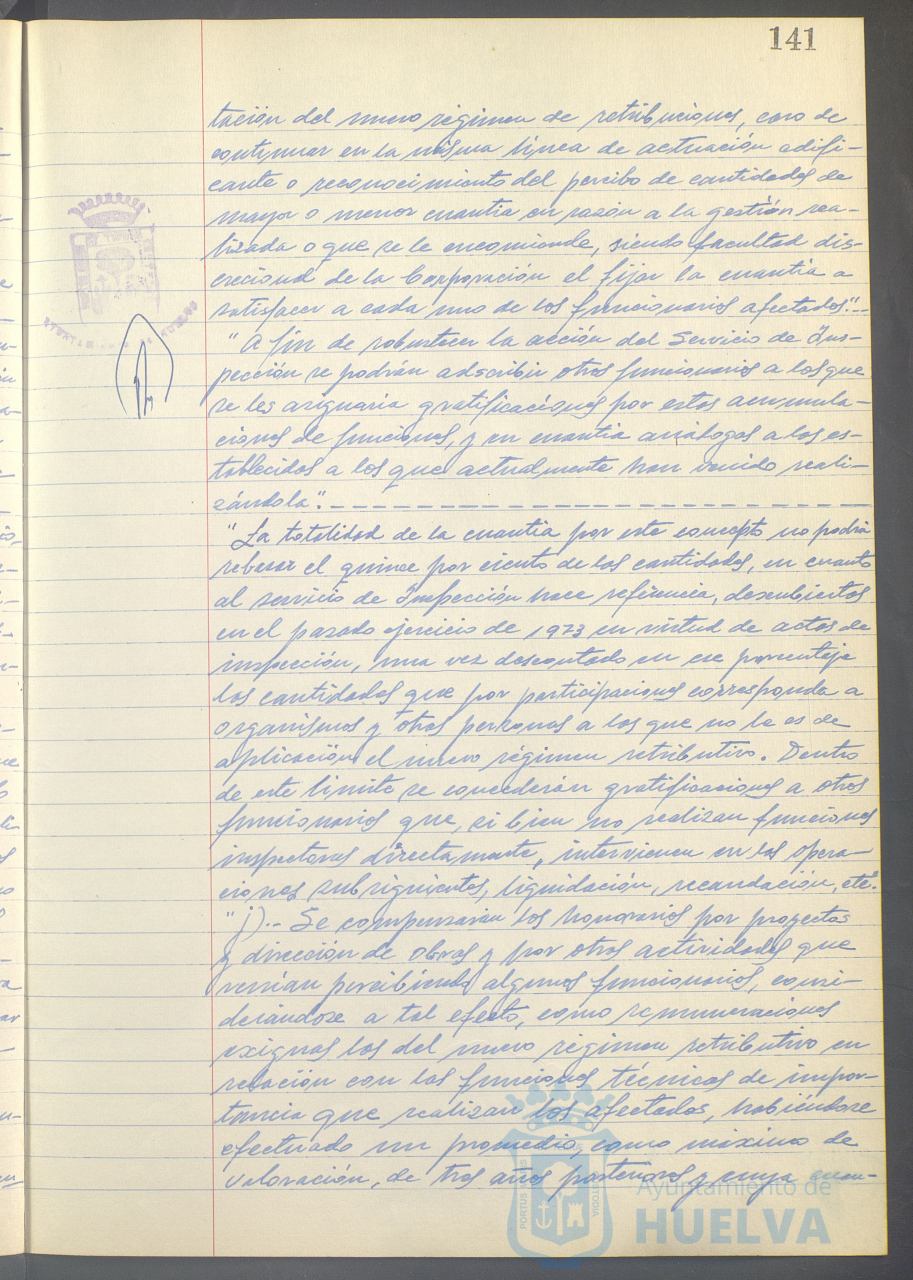 141
tación del nuevo régimen de retribuciones, caso de
continuar en la misma línea de actuación edifi-
cante o reconocimiento del percibo de cantidades de
mayor o menor cuantía en razón a la gestión rea-
lizada o que se le encomiende, siendo facultad dis-
crecional de la Corporación el fijar la cuantía a
satisfacer a cada uno de los funcionarios afectados".--
"A fin de robustecer la acción del Servicio de Ins-
pección se podrán adscribir otros funcionarios a los que
se les asignaría gratificaciones por estas acumula-
ciones de funciones, y en cuantía análogas a los es-
tablecidos a los que actualmente han venido reali-
zándola".- - - - - - - - - - - - - - - - - - - - -
"La totalidad de la cuantía por este concepto no podrá
rebasar el quince por ciento de las cantidades, en cuanto
al servicio de Inspección hace referencia, descubiertos
en el pasado ejercicio de 1973 en virtud de actas de
inspección, una vez descontado en ese porcentaje
las cantidades que por participaciones corresponda a
Organismos y otras personas a los que no le es de
aplicación el nuevo régimen retributivo. Dentro
de este límite se concederán gratificaciones a otros
funcionarios que, si bien no realizan funciones
inspectoras directamente, intervienen en las opera-
ciones subsiguientes, liquidación, recaudación, etc".
"j).- Se compensarán los honorarios por proyectos
y dirección de obras y por otras actividades que
venían percibiendo algunos funcionarios, consi-
derándose a tal efecto, como remuneraciones
exiguas las del nuevo régimen retributivo en
relación con las funciones técnicas de impor-
tancia que realizan los afectados, habiéndose
efectuado un promedio, como máximo de
valoración, de tres años y cuya cuan-
PORTUS
Ayuntamiento de
HUELVA